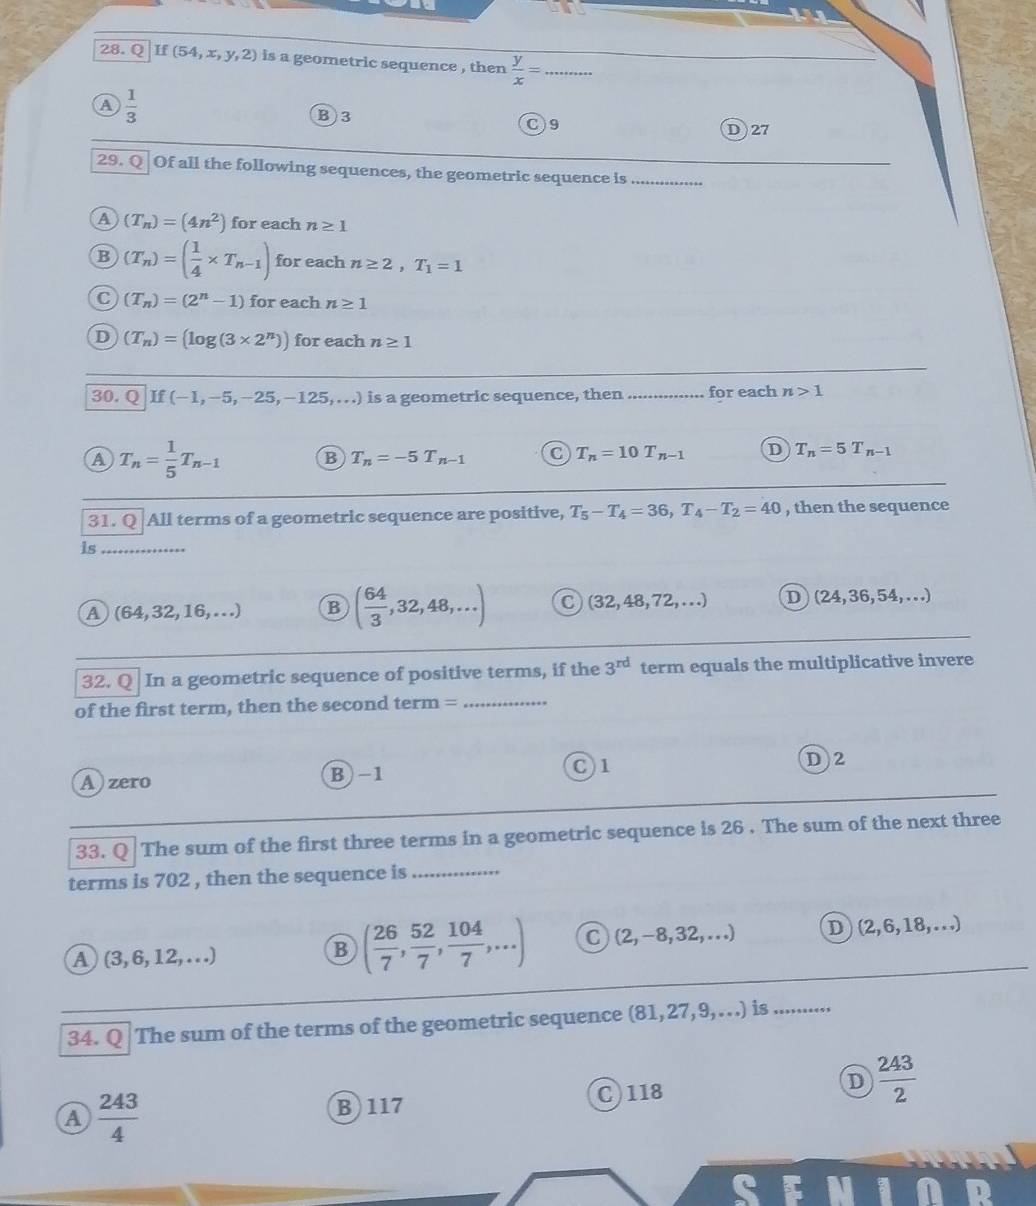 28. Q If (54, x, y, 2) is a geometric sequence , then y/x = ..........
A 1/3 B 3 C 9 D 27
29. Q Of all the following sequences, the geometric sequence is ...............
A (Tₙ) = (4n²) for each n ≥ 1
B (Tₙ) = (1/4 × Tₙ₋₁) for each n ≥ 2 , T₁ = 1
C (Tₙ) = (2ⁿ − 1) for each n ≥ 1
D (Tₙ) = (log (3 × 2ⁿ)) for each n ≥ 1
30. Q If (−1, −5, −25, −125, ...) is a geometric sequence, then ............... for each n > 1
A Tₙ = 1/5 Tₙ₋₁ B Tₙ = −5 Tₙ₋₁ C Tₙ = 10 Tₙ₋₁ D Tₙ = 5 Tₙ₋₁
31. Q All terms of a geometric sequence are positive, T₅ − T₄ = 36, T₄ − T₂ = 40 , then the sequence
is ...............
A (64, 32, 16, ...) B (64/3, 32, 48, ...) C (32, 48, 72, ...) D (24, 36, 54, ...)
32. Q In a geometric sequence of positive terms, if the 3ʳᵈ term equals the multiplicative invere
of the first term, then the second term = ...............
A zero B −1 C 1 D 2
33. Q The sum of the first three terms in a geometric sequence is 26 . The sum of the next three
terms is 702 , then the sequence is ...............
A (3, 6, 12, ...) B (26/7, 52/7, 104/7, ...) C (2, −8, 32, ...) D (2, 6, 18, ...)
34. Q The sum of the terms of the geometric sequence (81, 27, 9, ...) is ..........
A 243/4 B 117 C 118 D 243/2
SENIOR